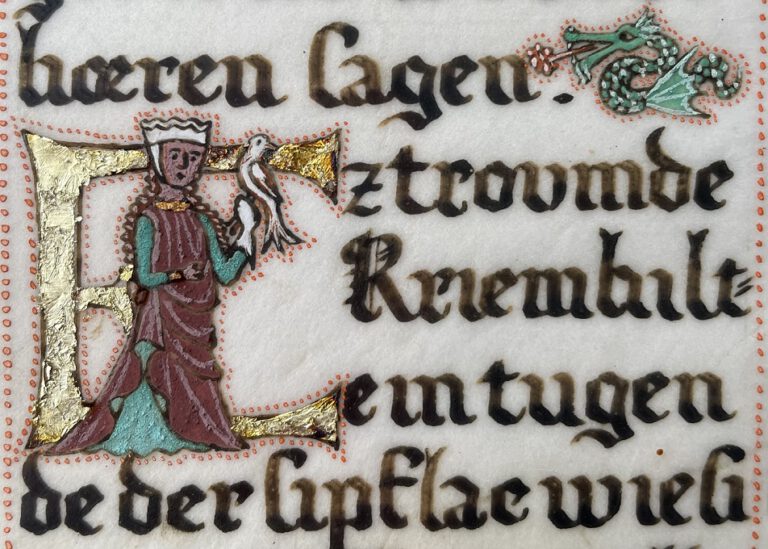 hœren ſagen.
Ez trovmde
Kriemhilt=
e in tugen
de der ſi pflac wie ſi